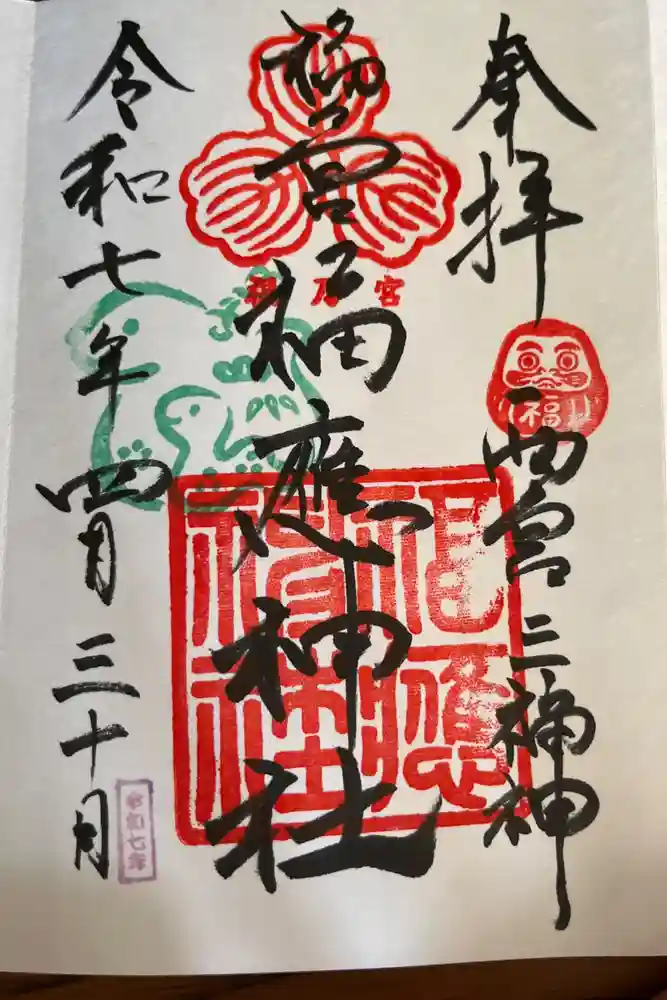 奉拝
西宮三福神
福
福宮福應神社
福乃宮
令和七年四月三十日
令和七年